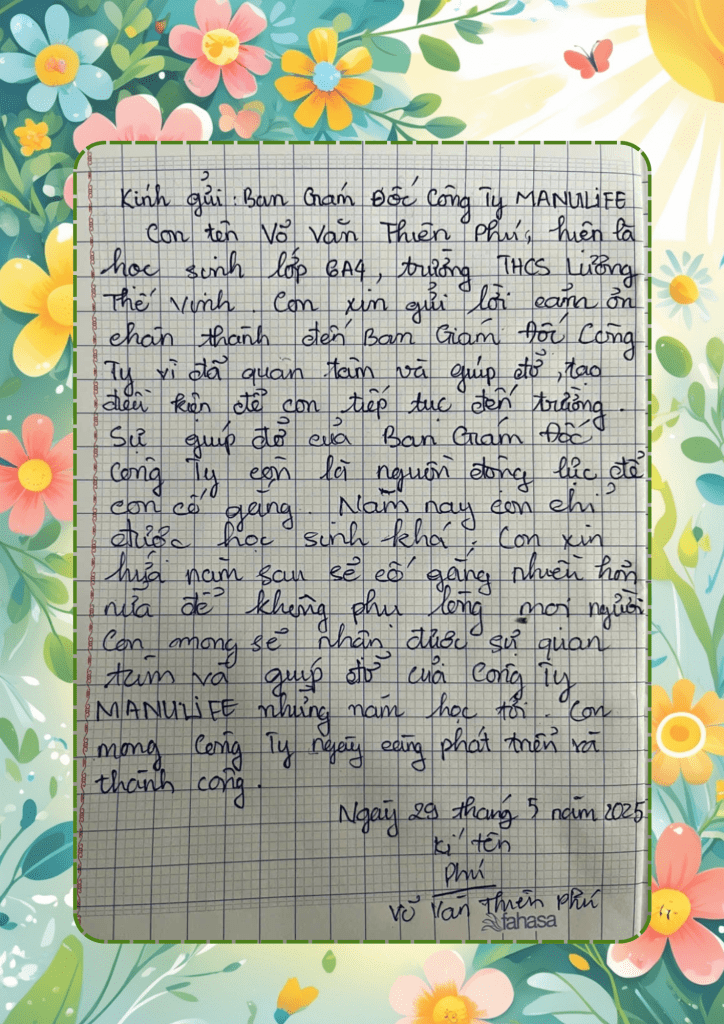 Kính gửi : Ban Giám Đốc Công Ty MANULiFE
Con tên Võ Văn Thiên Phú, hiện là
học sinh lớp 6A4, trường THCS Lương
Thế Vinh. Con xin gửi lời cảm ơn
chân thành đến Ban Giám Đốc Công
Ty vì đã quan tâm và giúp đỡ, tạo
điều kiện để con tiếp tục đến trường.
Sự giúp đỡ của Ban Giám Đốc
Công Ty còn là nguồn động lực để
con cố gắng. Năm nay con chỉ
được học sinh khá. Con xin
hứa năm sau sẽ cố gắng nhiều hơn
nữa để không phụ lòng mọi người
Con mong sẽ nhận được sự quan
tâm và giúp đỡ của Công Ty
MANULiFE những năm học tới. Con
mong Công Ty ngày càng phát triển và
thành công.
Ngày 29 tháng 5 năm 2025
Kí tên
Phú
Võ Văn Thiên Phú
fahasa